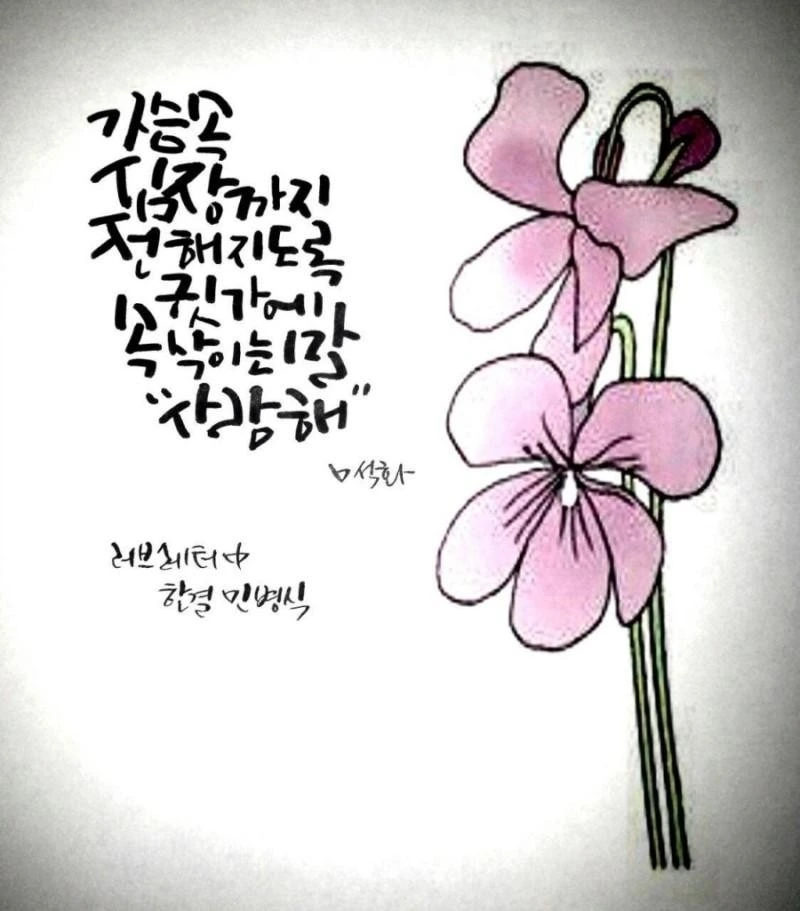 가슴속
심장까지
전해지도록
귓가에
속삭이는 말
"사랑해"
석화
러브레터 中
한결 민병식